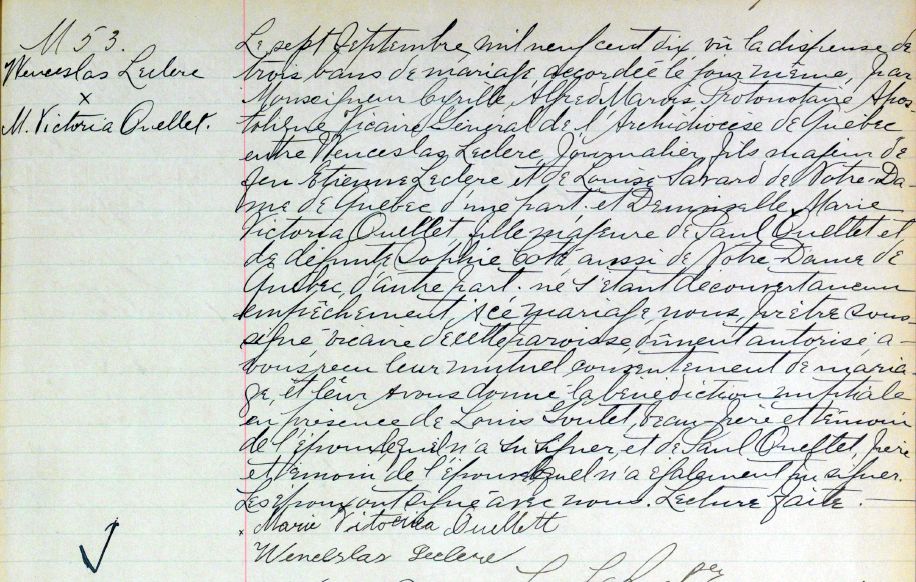 M 53.
Wenceslas Leclerc
x
M. Victoria Ouellet.
Le sept Septembre mil neuf cent dix vû la dispense de
trois bans de mariage accordée le jour même, par
Monseigneur Cyrille Alfred Marois Protonotaire Apos
tolique Vicaire Général de l'Archidiocèse de Québec
entre Wenceslas Leclerc, Journalier, fils majeur de
feu Etienne Leclerc et de Louise Savard de Notre-Da-
me de Québec d'une part et Demoiselle Marie
Victoria Ouellet, fille majeure de Paul Ouellet et
de défunte Sophie Coté aussi de Notre-Dame de
Québec, d'autre part. ne s'étant découvert aucun
empêchement à ce mariage, nous, prêtre sous-
signé vicaire de cette paroisse, dûment autorisé a-
vons reçu leur mutuel consentement de maria-
ge, et leur avons donné la bénédiction nuptiale
en présence de Louis Goulet, beau-frère et témoin
de l'époux lequel n'a su signer, et de Paul Ouellet, père
et témoin de l'épouse lequel n'a également pu signer.
Les époux ont signé avec nous. Lecture faite.
x Marie Vitocika Ouellett
Wencelslas Leclerc